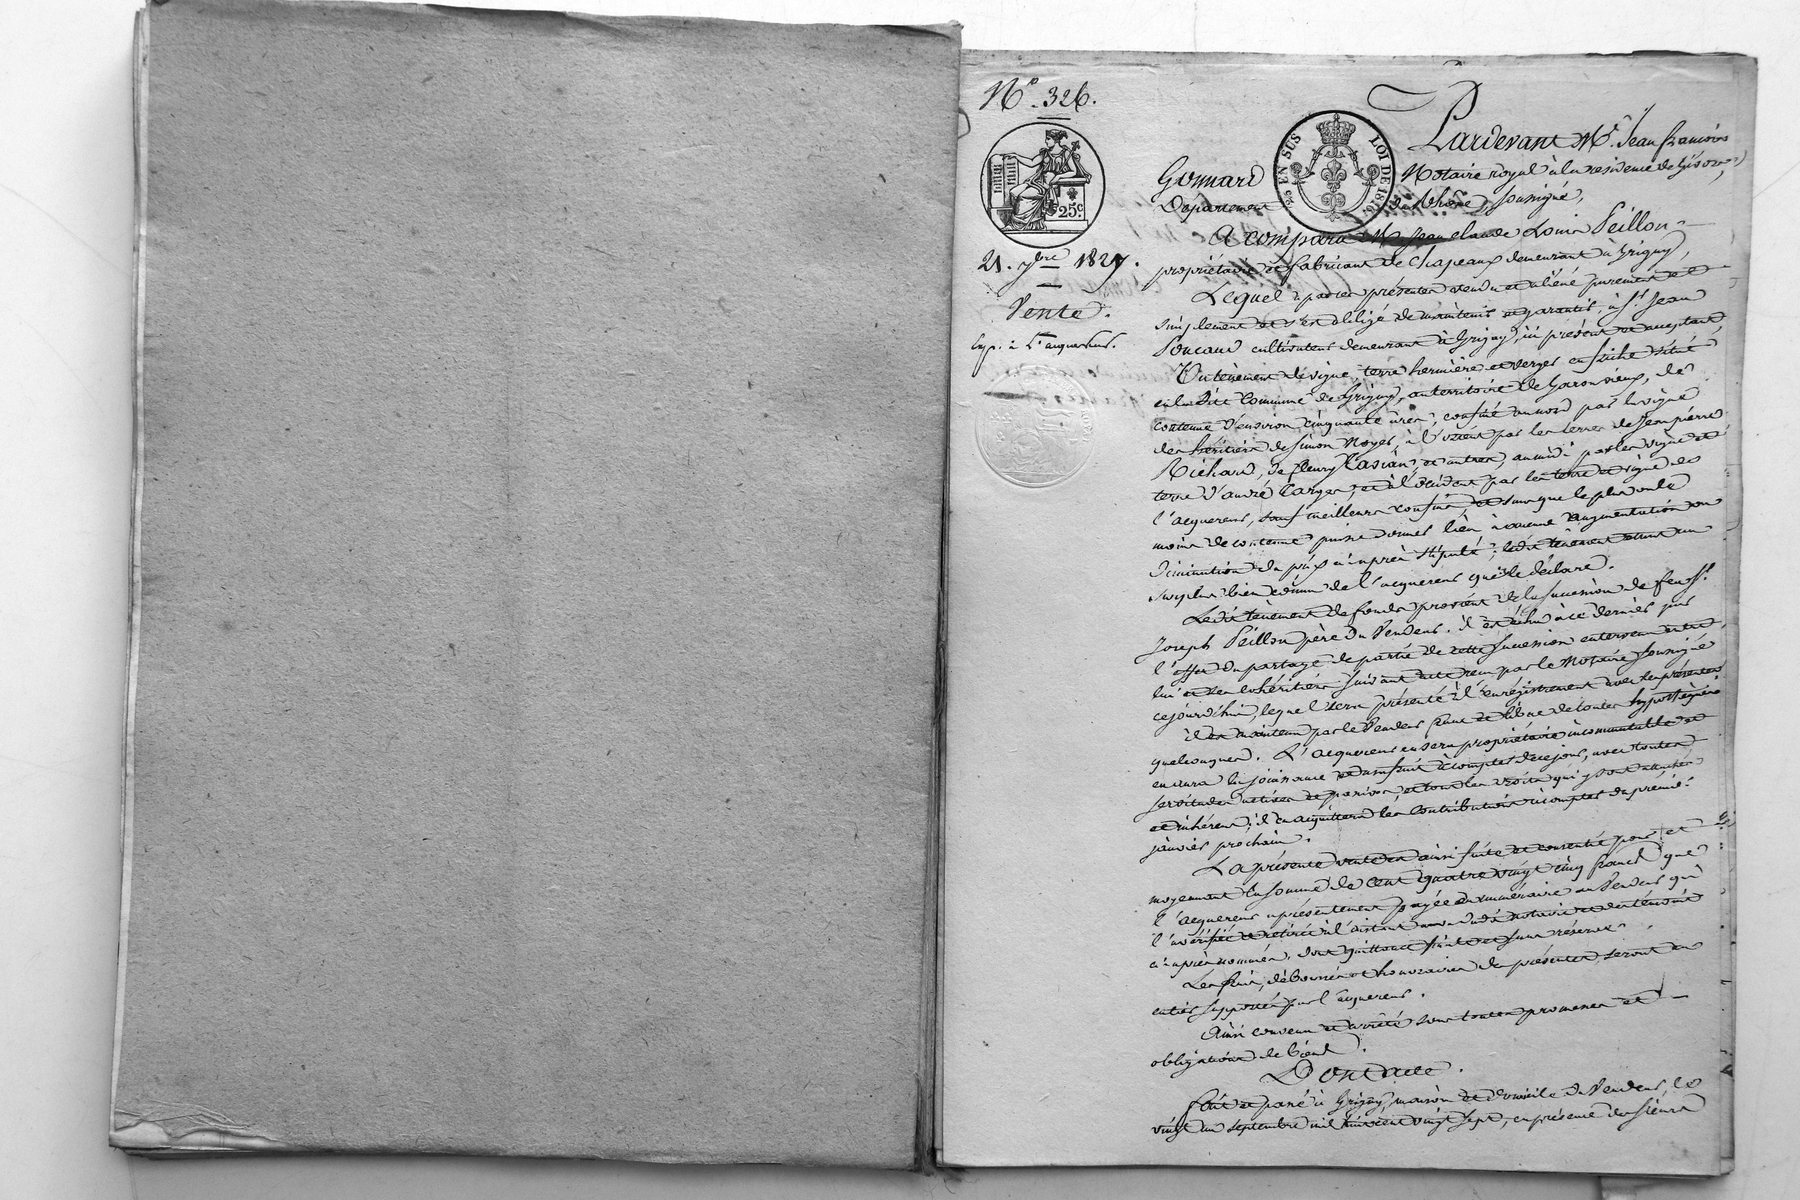 N.º 326.
25 EN SUS LOI DE 1816
25 c.
21. 7bre 1827.
Vente.
Exp. à l'acquereur.
Pardevant Me. Jean françois
Gonnard Notaire royal à la résidence de Givors,
Département du Rhône, soussigné,
A comparu Mr. Jean claude Louis Peillon
propriétaire et fabricant de chapeaux demeurant à Grigny,
Lequel a par ces présentes vendu et aliéné purement et
simplement et s'est obligé de maintenir et garantir, à Sr. Jean
Poncand cultivateur demeurant à Grigny, ici présent et acceptant,
Un tènement de vigne, terre hermière et verger en friche situé
en la dite Commune de Grigny, au territoire de Garonsieux, de
contenue d'environ cinquante ares; confiné au nord par la vigne
des héritiers de Simon Noyer, à l'orient par les terres de Jean pierre
Richard, de fleury et autres, au midi par les vigne et
terre d'andré Carge, et à l'occident par les terre et vigne de
l'acquereur, sauf meilleurs confins, et sans que le plus ou le
moins de contenue puisse donner lieu à aucune augmentation ou
diminution du prix ci après stipulé; ledit tènement étant au
surplus bien connu de l'acquereur qui le déclare.
Ledit tènement de fonds provient de la succession de feu Sr.
Joseph Peillon père du Vendeur. il est échu à ce dernier par
l'effet du partage de partie de cette succession intervenu entre
lui et ses cohéritiers suivant acte reçu par le Notaire soussigné
cejourd'hui, lequel sera présenté à l'enrégistrement avec les présentes
il est maintenu par le Vendeur franc et libre de toutes hypothèques
quelconques. L'acquereur en sera propriétaire incommutable et
en aura la jouissance à compter de ce jour, avec toutes
servitudes actives et passives, et tous les droits qui y sont attachés
et inhérens; il en acquittera les Contributions à compter du premier
janvier prochain.
La présente vente est ainsi faite et consentie pour et
moyennant la somme de cent quatre vingt cinq francs que
l'acquereur a présentement payée en numéraire au Vendeur qui
l'a vérifiée et retirée à l'instant au vu dudit notaire et des témoins
ci après nommés, dont quittance finale et sans réserve.
Les frais, déboursés et honoraires des présentes, seront en
entier supportés par l'acquereur.
Ainsi convenu et arrêté sous toutes promesses et
obligations de Droit.
Dont acte.
fait et passé à Grigny, maison et domicile du Vendeur, le
vingt un septembre mil huit cent vingt sept, en présence des Sieurs